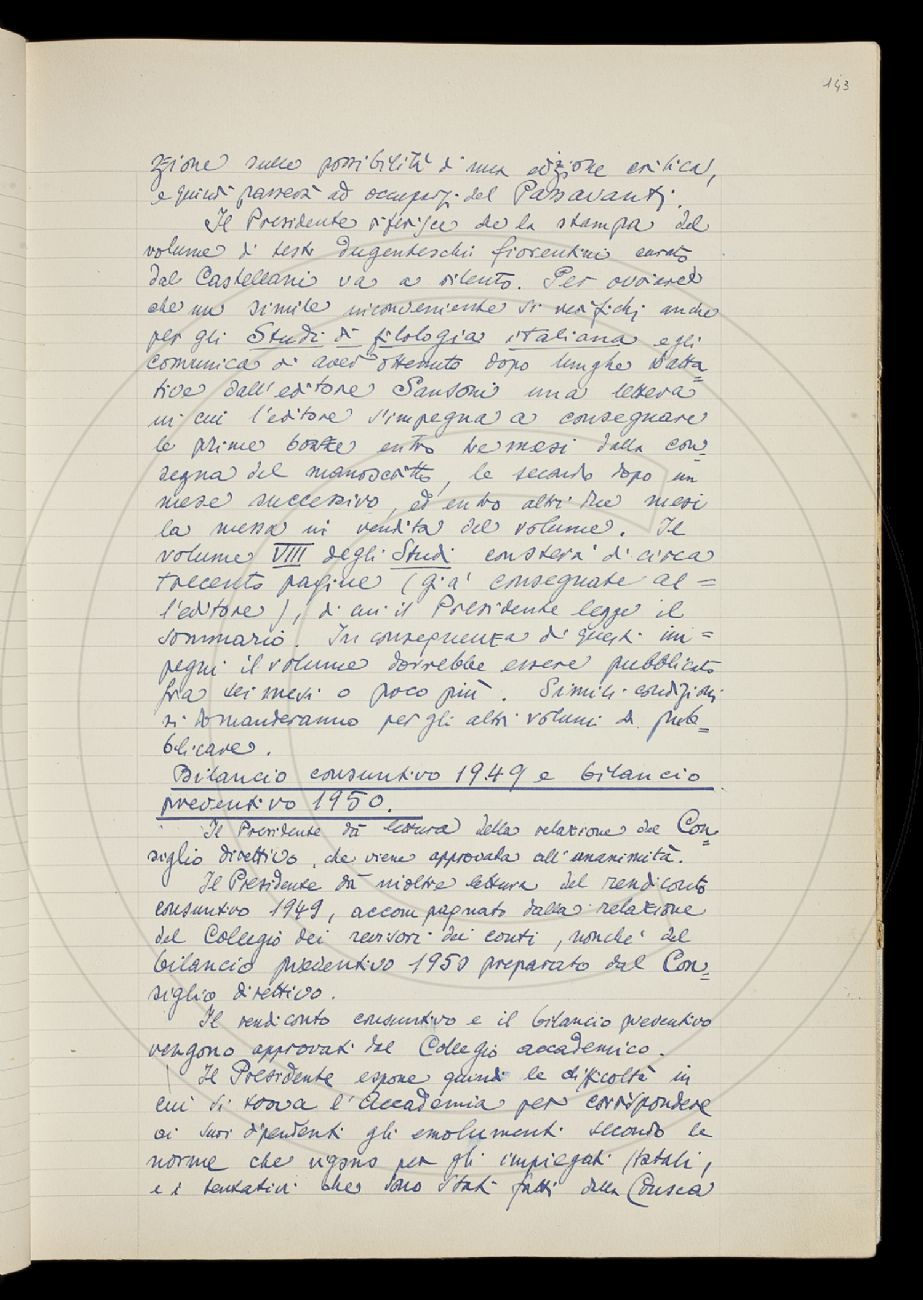 143
zione sulle possibilità di una edizione critica,
e quindi passerà ad occuparsi del Passavanti.
Il Presidente riferisce che la stampa del
volume di testi dugenteschi fiorentini curato
dal Castellani va a rilento. Per ovviare
che un simile inconveniente si verifichi anche
per gli Studi di filologia italiana egli
comunica di aver ottenuto dopo lunghe tratta=
tive dall'editore Sansoni una lettera
in cui l'editore s'impegna a consegnare
le prime bozze entro tre mesi dalla con=
segna del manoscritto, le seconde dopo un
mese successivo, ed entro altri due mesi
la messa in vendita del volume. Il
volume VIII degli Studi consterà di circa
trecento pagine (già consegnate al=
l'editore), di cui il Presidente legge il
sommario. In conseguenza di questi im=
pegni il volume dovrebbe essere pubblicato
fra sei mesi o poco più. Simili condizioni
si domanderanno per gli altri volumi da pub=
blicare.
Bilancio consuntivo 1949 e bilancio
preventivo 1950.
Il Presidente dà lettura della relazione del Con=
siglio direttivo, che viene approvata all'unanimità.
Il Presidente dà inoltre lettura del rendiconto
consuntivo 1949, accompagnato dalla relazione
del Collegio dei revisori dei conti, nonché del
bilancio preventivo 1950 preparato dal Con=
siglio direttivo.
Il rendiconto consuntivo e il bilancio preventivo
vengono approvati dal Collegio accademico.
Il Presidente espone quindi le difficoltà in
cui si trova l'Accademia per corrispondere
ai suoi dipendenti gli emolumenti secondo le
norme che vigono per gli impiegati statali,
e i tentativi che sono stati fatti dalla Crusca